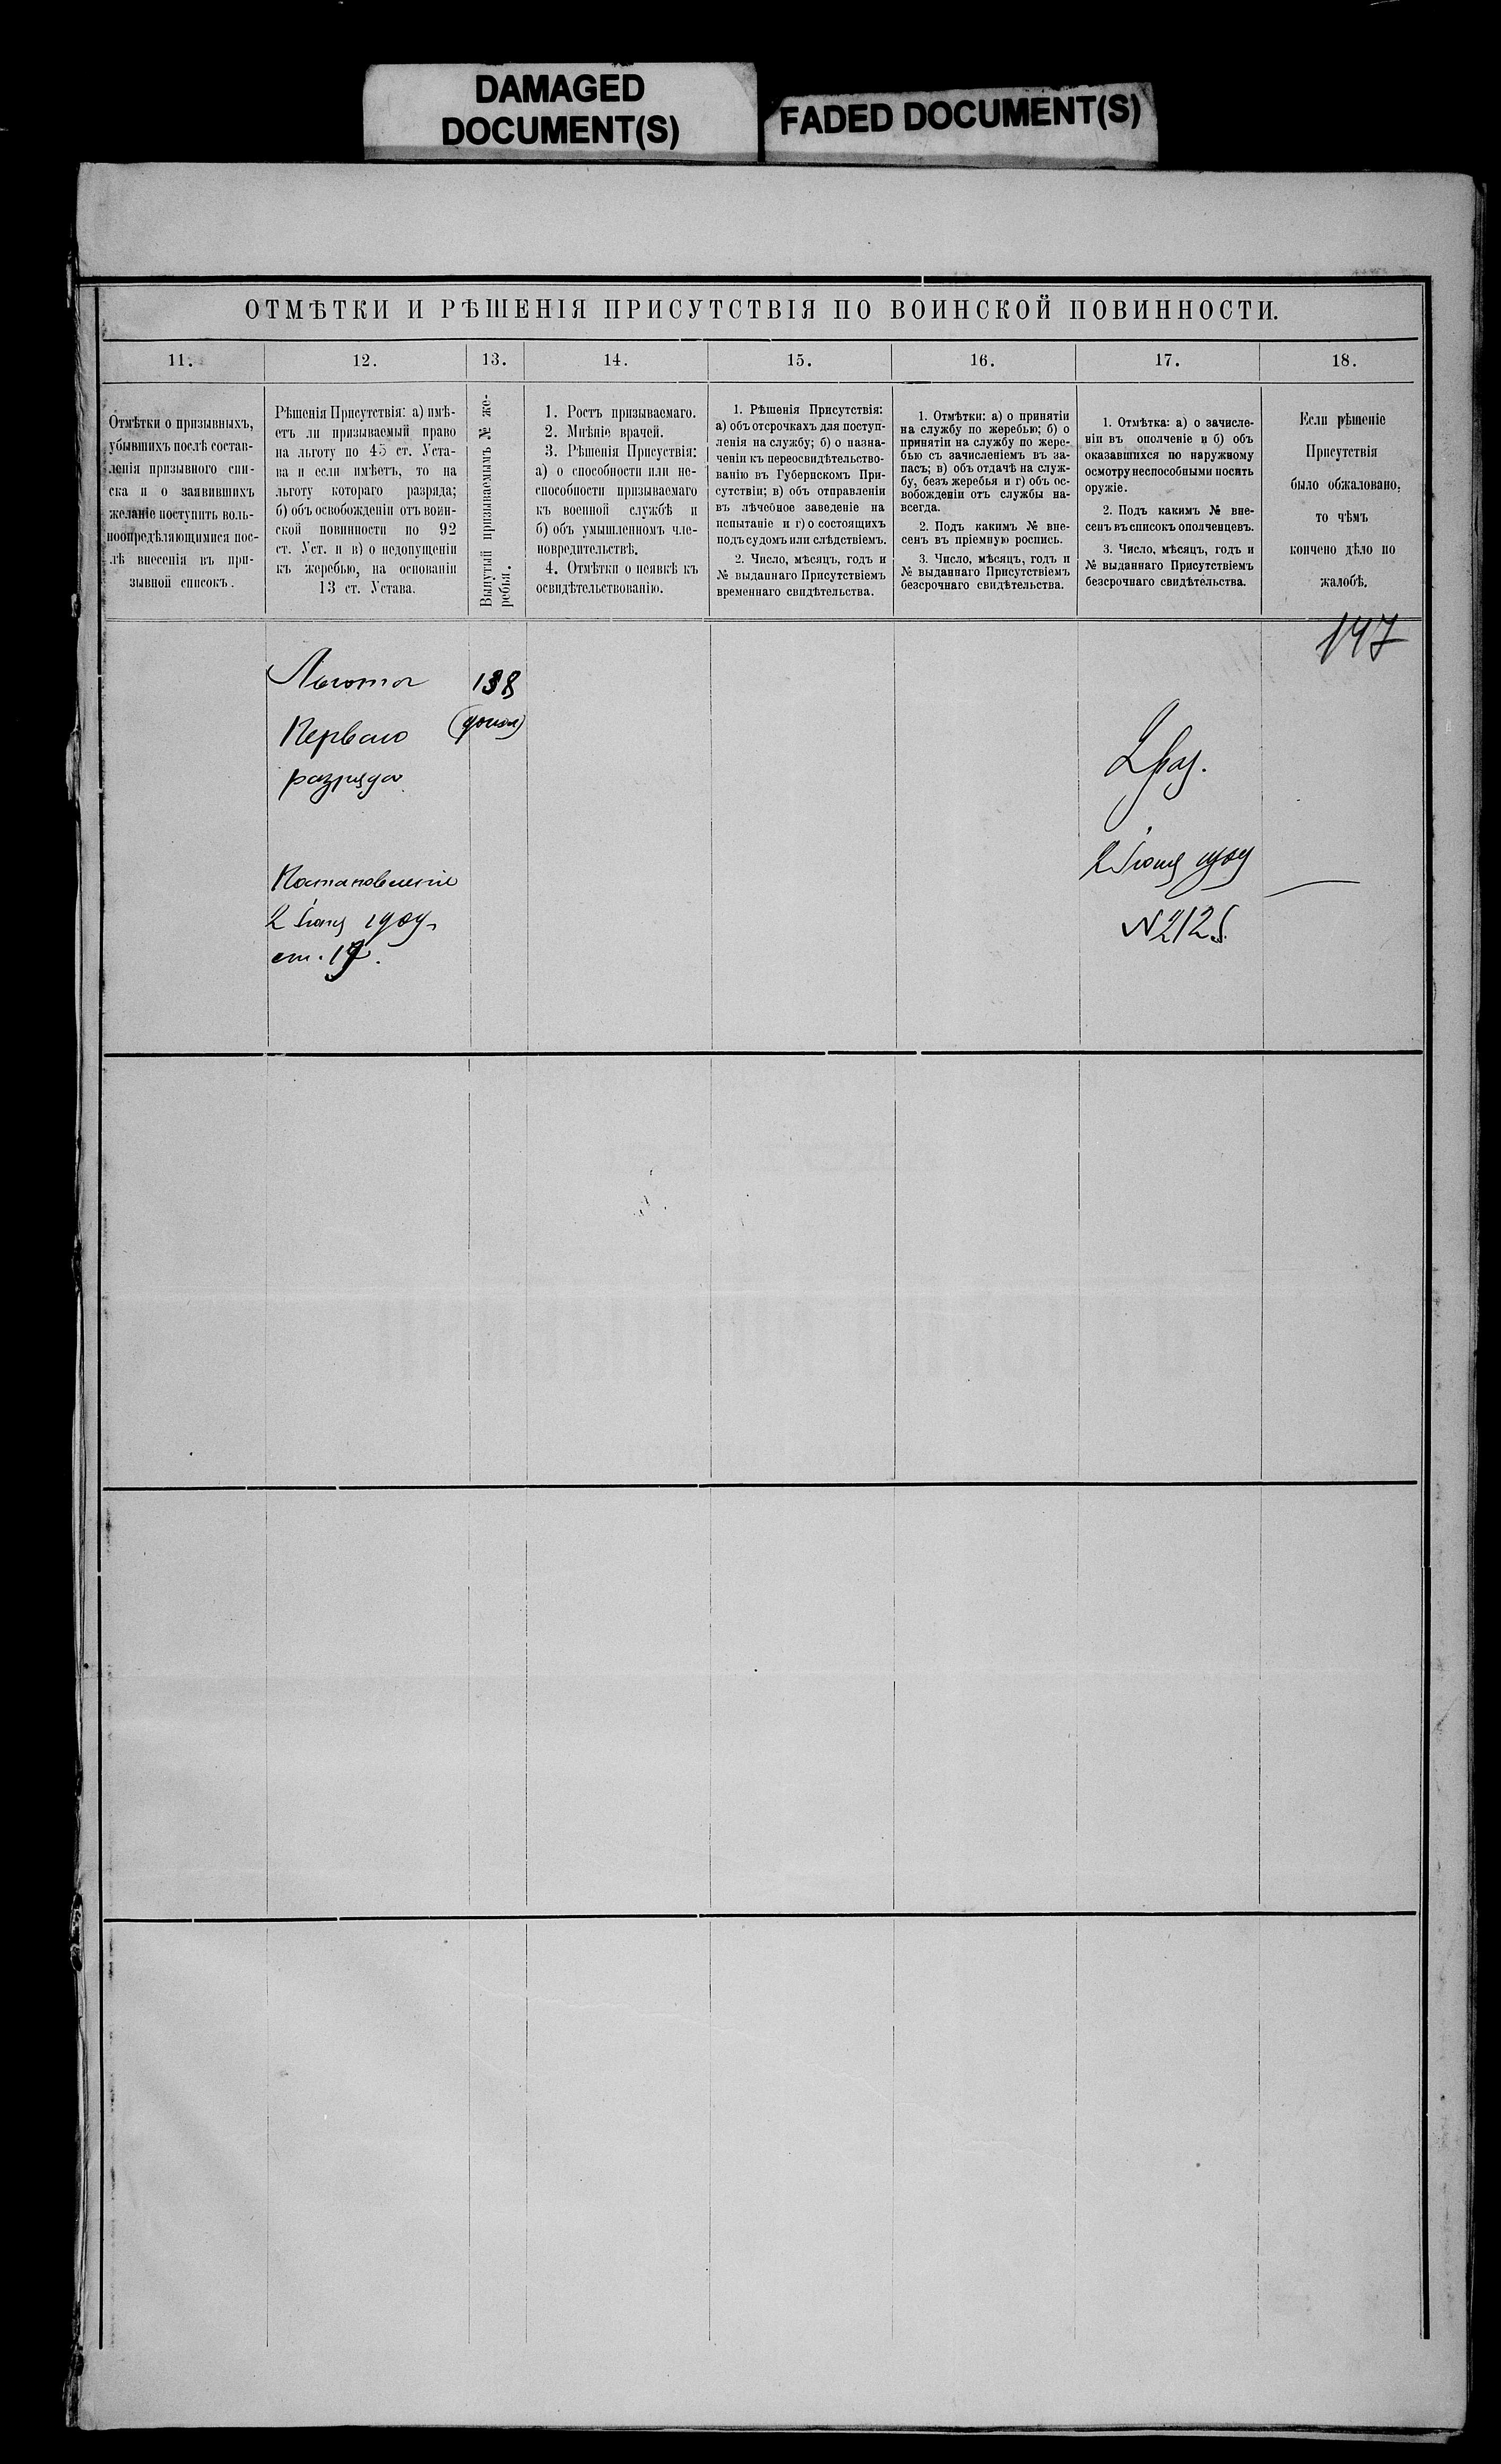 DAMAGED
DOCUMENT(S)
FADED DOCUMENT(S)
ОТМѢТКИ И РѢШЕНІЯ ПРИСУТСТВІЯ ПО ВОИНСКОЙ ПОВИННОСТИ.
11.
12.
13.
14.
15.
16.
17.
18.
Отмѣтки о призывныхъ,
убывшихъ послѣ состав-
ленія призывного спи-
ска и о заявившихъ
желаніе поступить воль-
ноопредѣляющимися пос-
лѣ внесенія въ при-
зывной списокъ.
Рѣшенія Присутствія: а) имѣ-
етъ ли призываемый право
на льготу по 45 ст. Уста-
ва и если имѣетъ, то на
льготу котораго разряда;
б) объ освобожденіи отъ воин-
ской повинности по 92
ст. Уст. и в) о недопущеніи
къ жеребью, на основаніи
13 ст. Устава.
Вынутый призываемымъ № же-
ребья.
1. Ростъ призываемаго.
2. Мнѣніе врачей.
3. Рѣшенія Присуствія:
а) о способности или не-
способности призываемаго
къ военной службѣ и
б) объ умышленномъ чле-
новредительствѣ.
4. Отмѣтки о неявкѣ къ
освидѣтельствованію.
1. Рѣшенія Присутствія:
а) объ отсрочкахъ для поступ-
ленія на службу; б) о назна-
ченіи къ переосвидѣтельство-
ванію въ Губернскомъ При-
сутствіи; в) объ отправленіи
въ лѣчебное заведеніе на
испытаніе и г) о состоящихъ
подъ судомъ или слѣдствіемъ.
2. Число, мѣсяцъ, годъ и
№ выданнаго Присутствіемъ
временнаго свидѣтельства.
1. Отмѣтки: а) о принятіи
на службу по жеребью; б) о
принятіи на службу по жере-
бью съ зачисленіемъ въ за-
пасъ; в) объ отдачѣ на служ-
бу, безъ жеребья и г) объ ос-
вобожденіи отъ службы на-
всегда.
2. Подъ какимъ № вне-
сенъ въ пріемную роспись.
3. Число, мѣсяцъ, годъ и
№ выданнаго Присутствіемъ
безсрочнаго свидѣтельства.
1. Отмѣтка: а) о зачисле-
ніи въ ополченіе и б) объ
оказавшихся по наружному
осмотру неспособными носить
оружіе.
2. Подъ какимъ № вне-
сенъ въ списокъ ополченцевъ.
3. Число, мѣсяцъ, годъ и
№ выданнаго Присутствіемъ
безсрочнаго свидѣтельства.
Если рѣшеніе
Присутствія
было обжаловано,
то чѣмъ
кончено дѣло по
жалобѣ.
147
Льгота
Перваго
разряда
Постановленіе
2 Іюня 1909
ст. 17.
138
(допол)
2 раз.
2 Іюня 1909
N 2125.